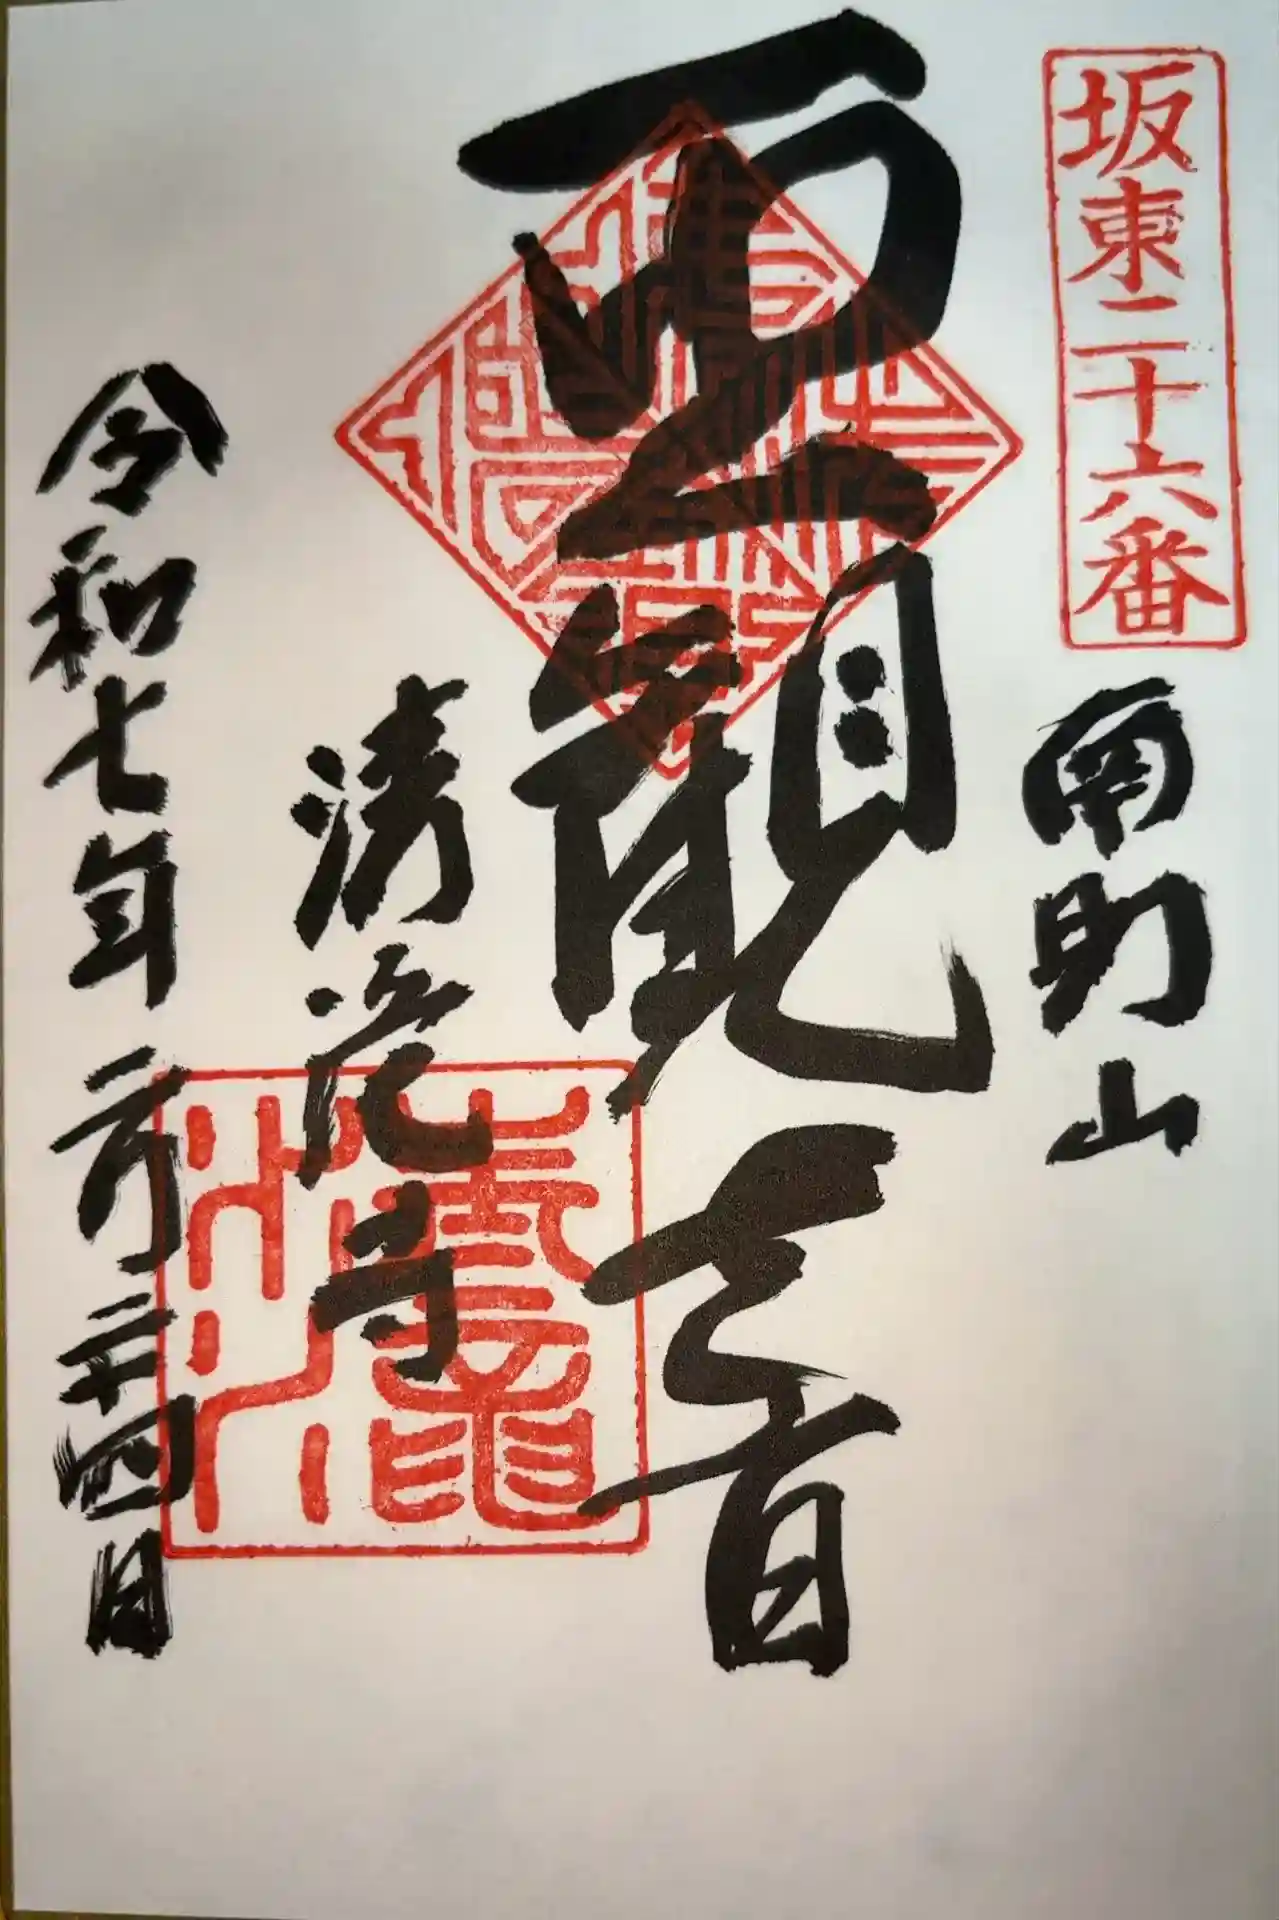 坂東二十六番
南明山
聖観世音
清滝寺
令和七年二月二十四日